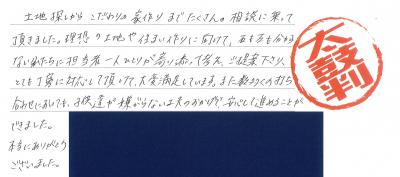 土地探しから こだわりの家作りまでたくさん。相談に乗って
頂きました。理想の土地や住まい作りに向けて、右も左も分から
ない私たちに担当者一人ひとりが寄り添って考え、ご提案下さり、
とても丁寧に対応して頂けて、大変満足しています。また数多くの打ち
合わせにおいても、子供達が嫌がらない工夫のおかげで、安心して進めることが
できました。
本当にありがとう
ございました。
太鼓判